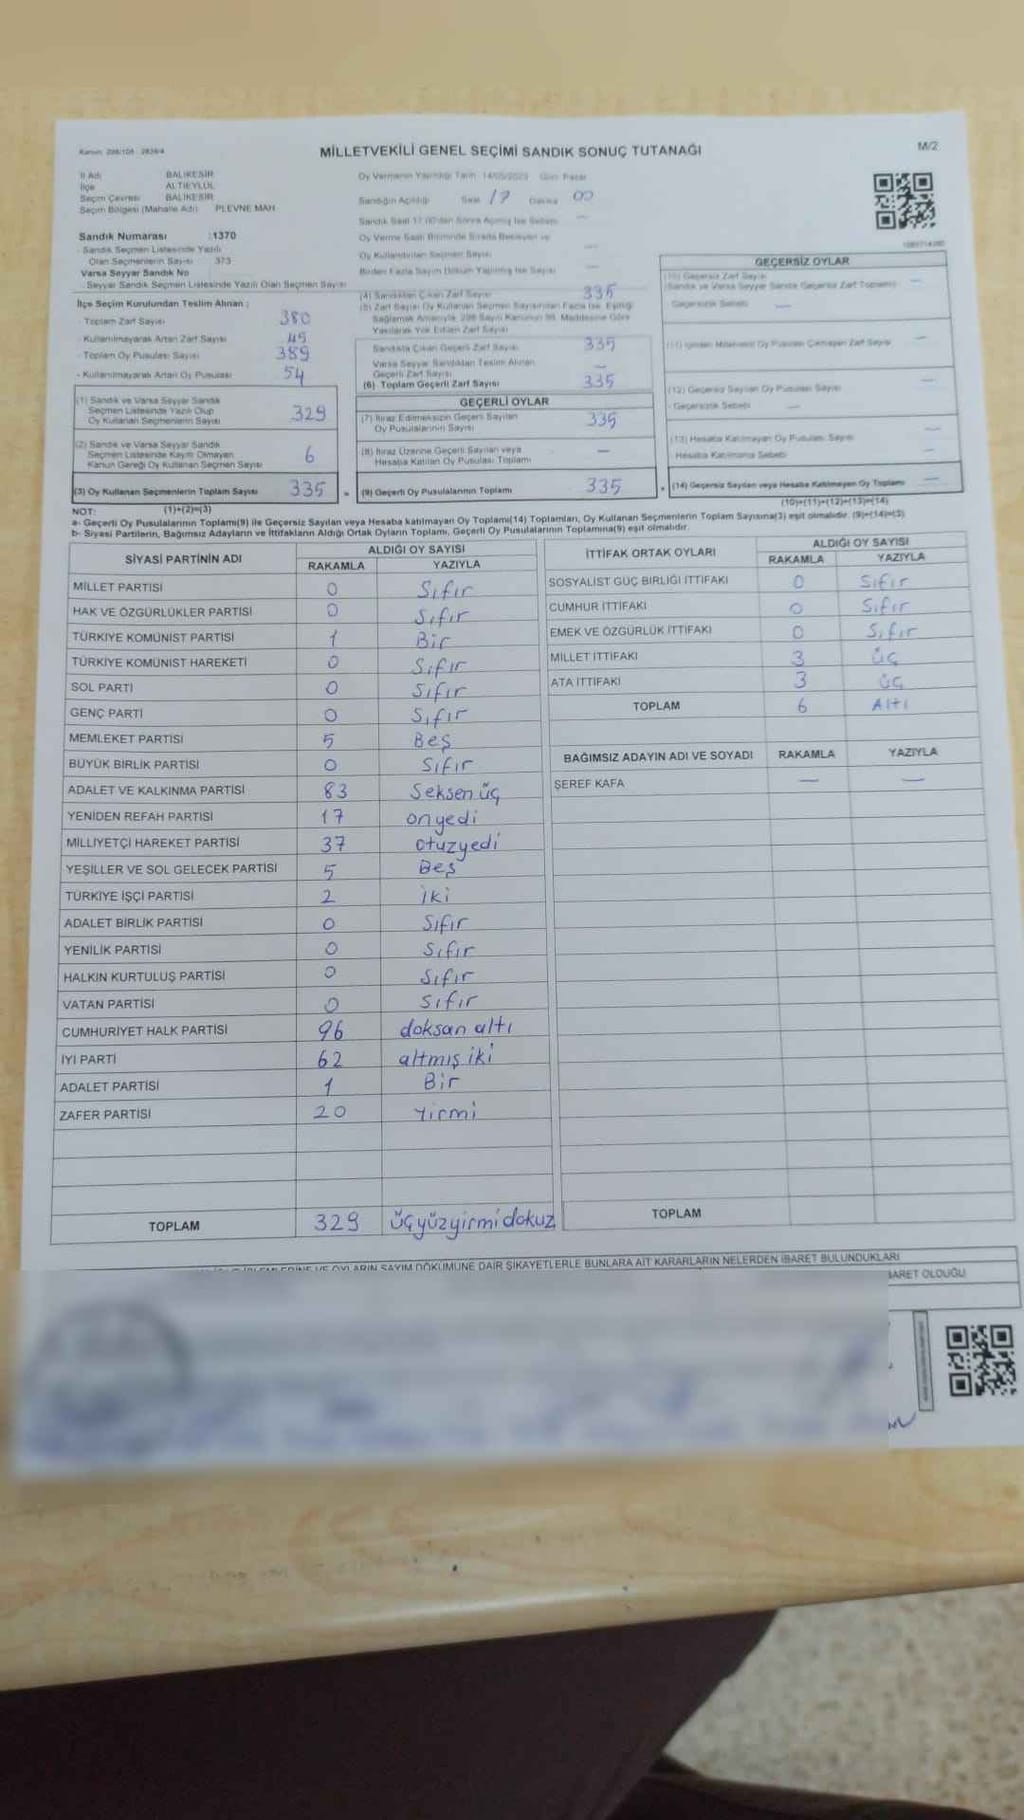 MİLLETVEKİLİ GENEL SEÇİMİ SANDIK SONUÇ TUTANAĞI
M/2
İl Adı BALIKESİR
İlçe ALTIEYLÜL
Seçim Çevresi BALIKESİR
Seçim Bölgesi (Mahalle Adı) PLEVNE MAH.
Oy Vermenin Yapıldığı Tarih 14/05/2023 Günü Pazar
Sandığın Açıldığı Saat 17 Dakika 00
Sandık Numarası :1370
- Sandık Seçmen Listesinde Yazılı
Olan Seçmenlerin Sayısı 373
Varsa Seyyar Sandık No
- Seyyar Sandık Seçmen Listesinde Yazılı Olan Seçmen Sayısı
İlçe Seçim Kurulundan Teslim Alınan ;
- Toplam Zarf Sayısı 380
- Kullanılmayarak Artan Zarf Sayısı 45
- Toplam Oy Pusulası Sayısı 389
- Kullanılmayarak Artan Oy Pusulası 54
(1) Sandık ve Varsa Seyyar Sandık
Seçmen Listesinde Yazılı Olup
Oy Kullanan Seçmenlerin Sayısı 329
(2) Sandık ve Varsa Seyyar Sandık
Seçmen Listesinde Kaydı Olmayan
Kanun Gereği Oy Kullanan Seçmen Sayısı 6
(3) Oy Kullanan Seçmenlerin Toplam Sayısı 335
(1)+(2)=(3)
(4) Sandıktan Çıkan Zarf Sayısı 335
Sandıkta Çıkan Geçerli Zarf Sayısı 335
Varsa Seyyar Sandıktan Teslim Alınan
Geçerli Zarf Sayısı —
(6) Toplam Geçerli Zarf Sayısı 335
GEÇERLİ OYLAR
(7) İtiraz Edilmeksizin Geçerli Sayılan
Oy Pusulalarının Sayısı 335
(8) İtiraz Üzerine Geçerli Sayılan veya
Hesaba Katılan Oy Pusulası Toplamı —
= (9) Geçerli Oy Pusulalarının Toplamı 335
GEÇERSİZ OYLAR
(12) Geçersiz Sayılan Oy Pusulası Sayısı —
- Geçersizlik Sebebi —
(13) Hesaba Katılmayan Oy Pusulası Sayısı —
- Hesaba Katılmama Sebebi —
+ (14) Geçersiz Sayılan veya Hesaba Katılmayan Oy Toplamı —
(10)+(11)+(12)+(13)=(14)
NOT:
a- Geçerli Oy Pusulalarının Toplamı(9) ile Geçersiz Sayılan veya Hesaba katılmayan Oy Toplamı(14) Toplamları, Oy Kullanan Seçmenlerin Toplam Sayısına(3) eşit olmalıdır. (9)+(14)=(3)
b- Siyasi Partilerin, Bağımsız Adayların ve İttifakların Aldığı Ortak Oyların Toplamı, Geçerli Oy Pusulalarının Toplamına(9) eşit olmalıdır.
SİYASİ PARTİNİN ADI ALDIĞI OY SAYISI
RAKAMLA YAZIYLA
MİLLET PARTİSİ 0 Sıfır
HAK VE ÖZGÜRLÜKLER PARTİSİ 0 Sıfır
TÜRKİYE KOMÜNİST PARTİSİ 1 Bir
TÜRKİYE KOMÜNİST HAREKETİ 0 Sıfır
SOL PARTİ 0 Sıfır
GENÇ PARTİ 0 Sıfır
MEMLEKET PARTİSİ 5 Beş
BÜYÜK BİRLİK PARTİSİ 0 Sıfır
ADALET VE KALKINMA PARTİSİ 83 Seksen üç
YENİDEN REFAH PARTİSİ 17 onyedi
MİLLİYETÇİ HAREKET PARTİSİ 37 otuzyedi
YEŞİLLER VE SOL GELECEK PARTİSİ 5 Beş
TÜRKİYE İŞÇİ PARTİSİ 2 iki
ADALET BİRLİK PARTİSİ 0 Sıfır
YENİLİK PARTİSİ 0 Sıfır
HALKIN KURTULUŞ PARTİSİ 0 Sıfır
VATAN PARTİSİ 0 Sıfır
CUMHURİYET HALK PARTİSİ 96 doksan altı
İYİ PARTİ 62 altmış iki
ADALET PARTİSİ 1 Bir
ZAFER PARTİSİ 20 Yirmi
TOPLAM 329 üçyüzyirmidokuz
İTTİFAK ORTAK OYLARI ALDIĞI OY SAYISI
RAKAMLA YAZIYLA
SOSYALİST GÜÇ BİRLİĞİ İTTİFAKI 0 Sıfır
CUMHUR İTTİFAKI 0 Sıfır
EMEK VE ÖZGÜRLÜK İTTİFAKI 0 Sıfır
MİLLET İTTİFAKI 3 üç
ATA İTTİFAKI 3 üç
TOPLAM 6 Altı
BAĞIMSIZ ADAYIN ADI VE SOYADI RAKAMLA YAZIYLA
ŞEREF KAFA — —
TOPLAM
OYLARIN SAYIM DÖKÜMÜNE DAİR ŞİKAYETLERLE BUNLARA AİT KARARLARIN NELERDEN İBARET BULUNDUKLARI